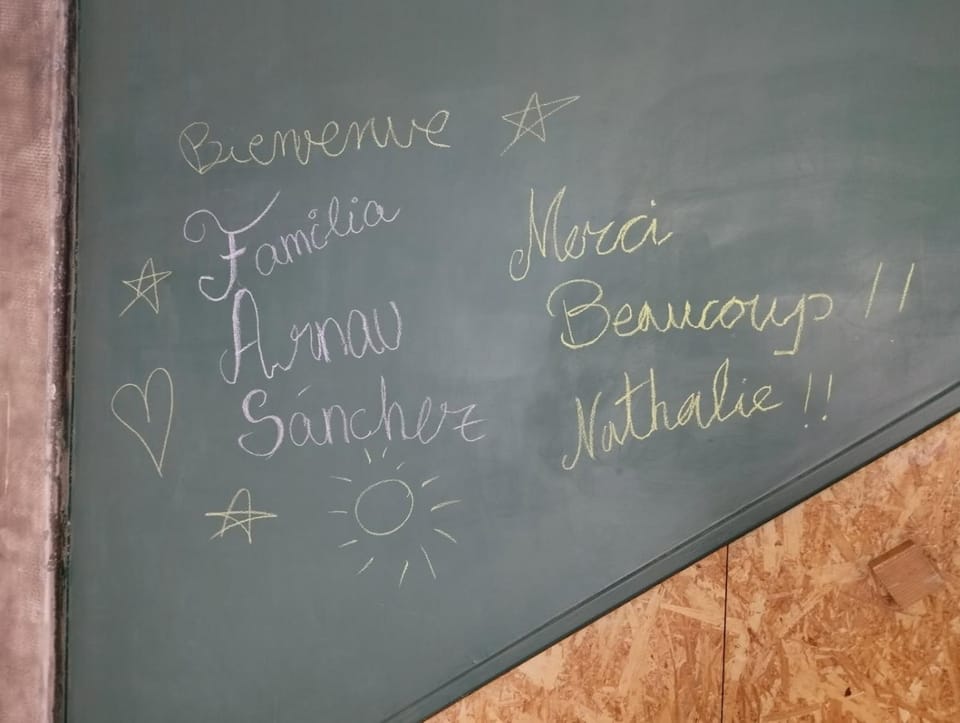 Bienvenue
Família
Arnau
Sánchez
Merci
Beaucoup !!
Nathalie !!